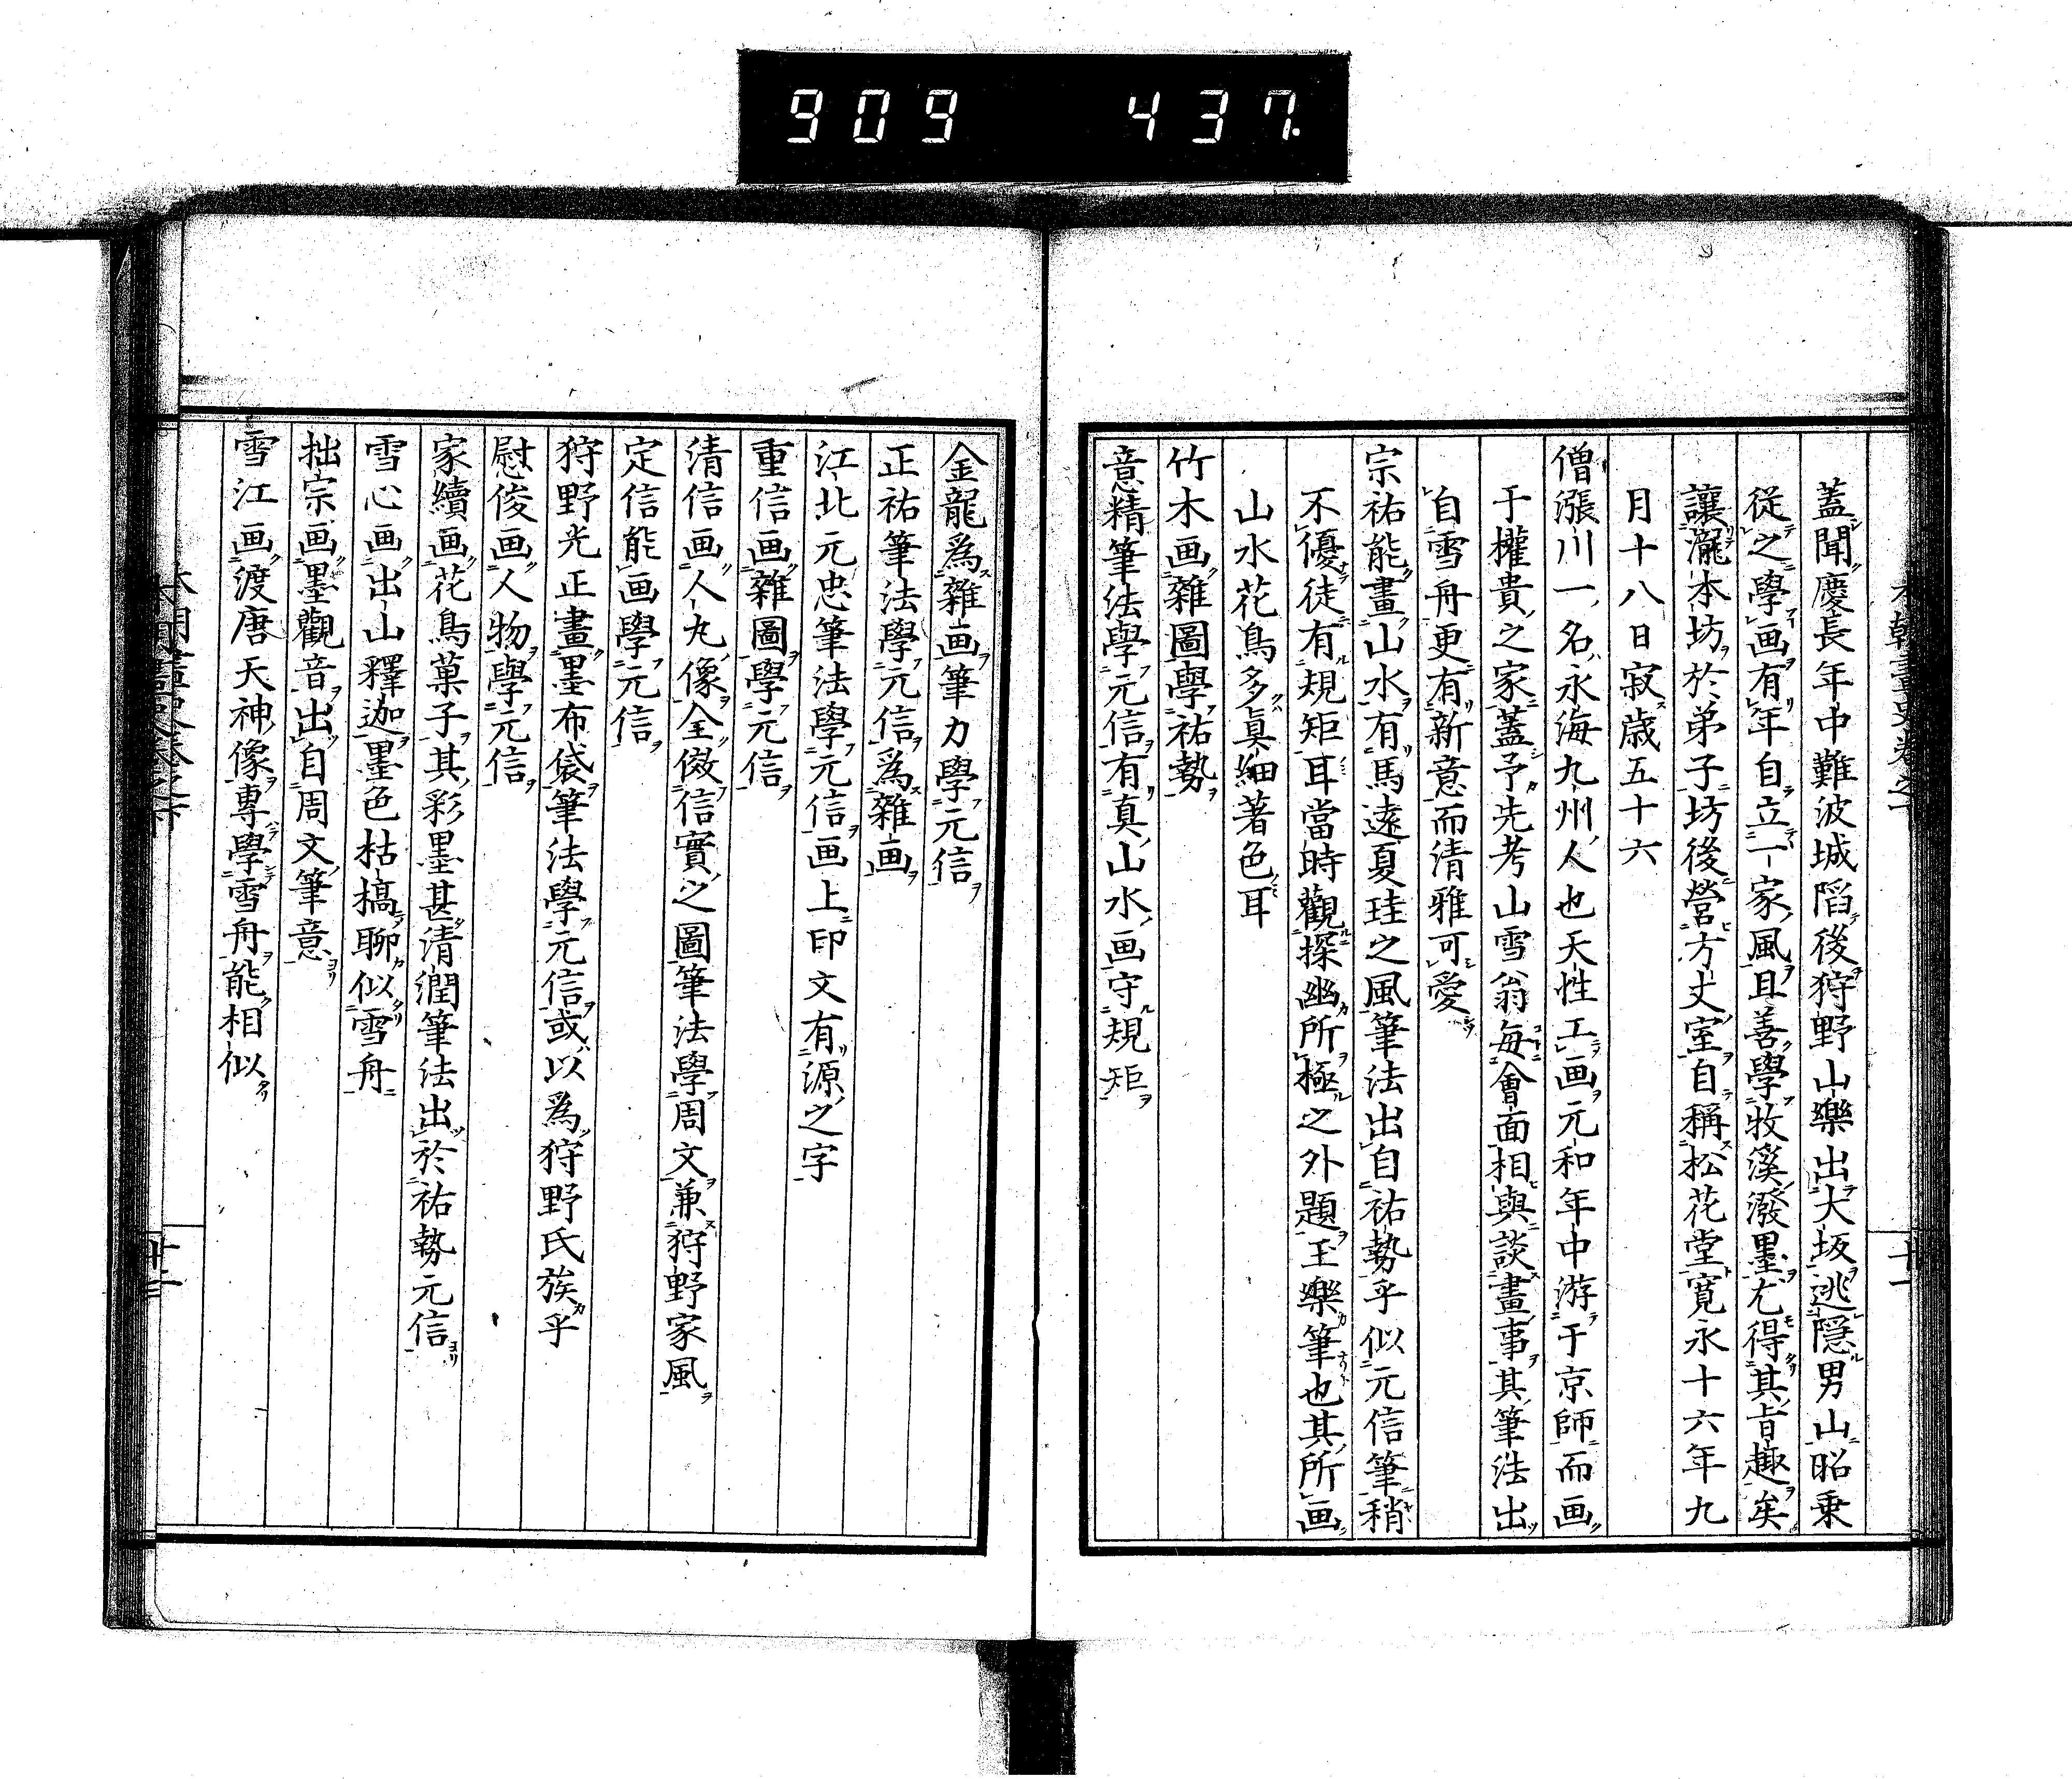 909 437
蓋聞慶長年中難波城陷後狩野山樂出大坂逃隱男山昭乗
從之學画有年自立一家風且善學牧溪潑墨尤得其旨趣矣
讓瀧本坊於弟子坊後營方丈室自稱松花堂寛永十六年九
月十八日寂歳五十六
僧漲川一名永海九州人也天性工画元和年中游于京師而画
于權貴之家蓋予先考山雪翁毎會面相與談畫事其筆法出
自雪舟更有新意而清雅可愛
宗祐能畫山水有馬遠夏珪之風筆法出自祐勢乎似元信筆稍
不優徒有規矩耳當時觀探幽所極之外題玉樂筆也其所画
山水花鳥多真細著色耳
竹木画雜圖學祐勢
意精筆法學元信有真山水画守規矩
金龍為雜画筆力學元信
正祐筆法學元信為雜画
江北元忠筆法學元信画上印文有源之字
重信画雜圖學元信
清信画人丸像全倣信實之圖筆法學周文兼狩野家風
定信能画學元信
狩野光正畫墨布袋筆法學元信或以為狩野氏族乎
慰俊画人物學元信
家續画花鳥菓子其彩墨甚清潤筆法出於祐勢元信
雪心画出山釋迦墨色枯槁聊似雪舟
拙宗画墨觀音出自周文筆意
雪江画渡唐天神像專學雪舟能相似